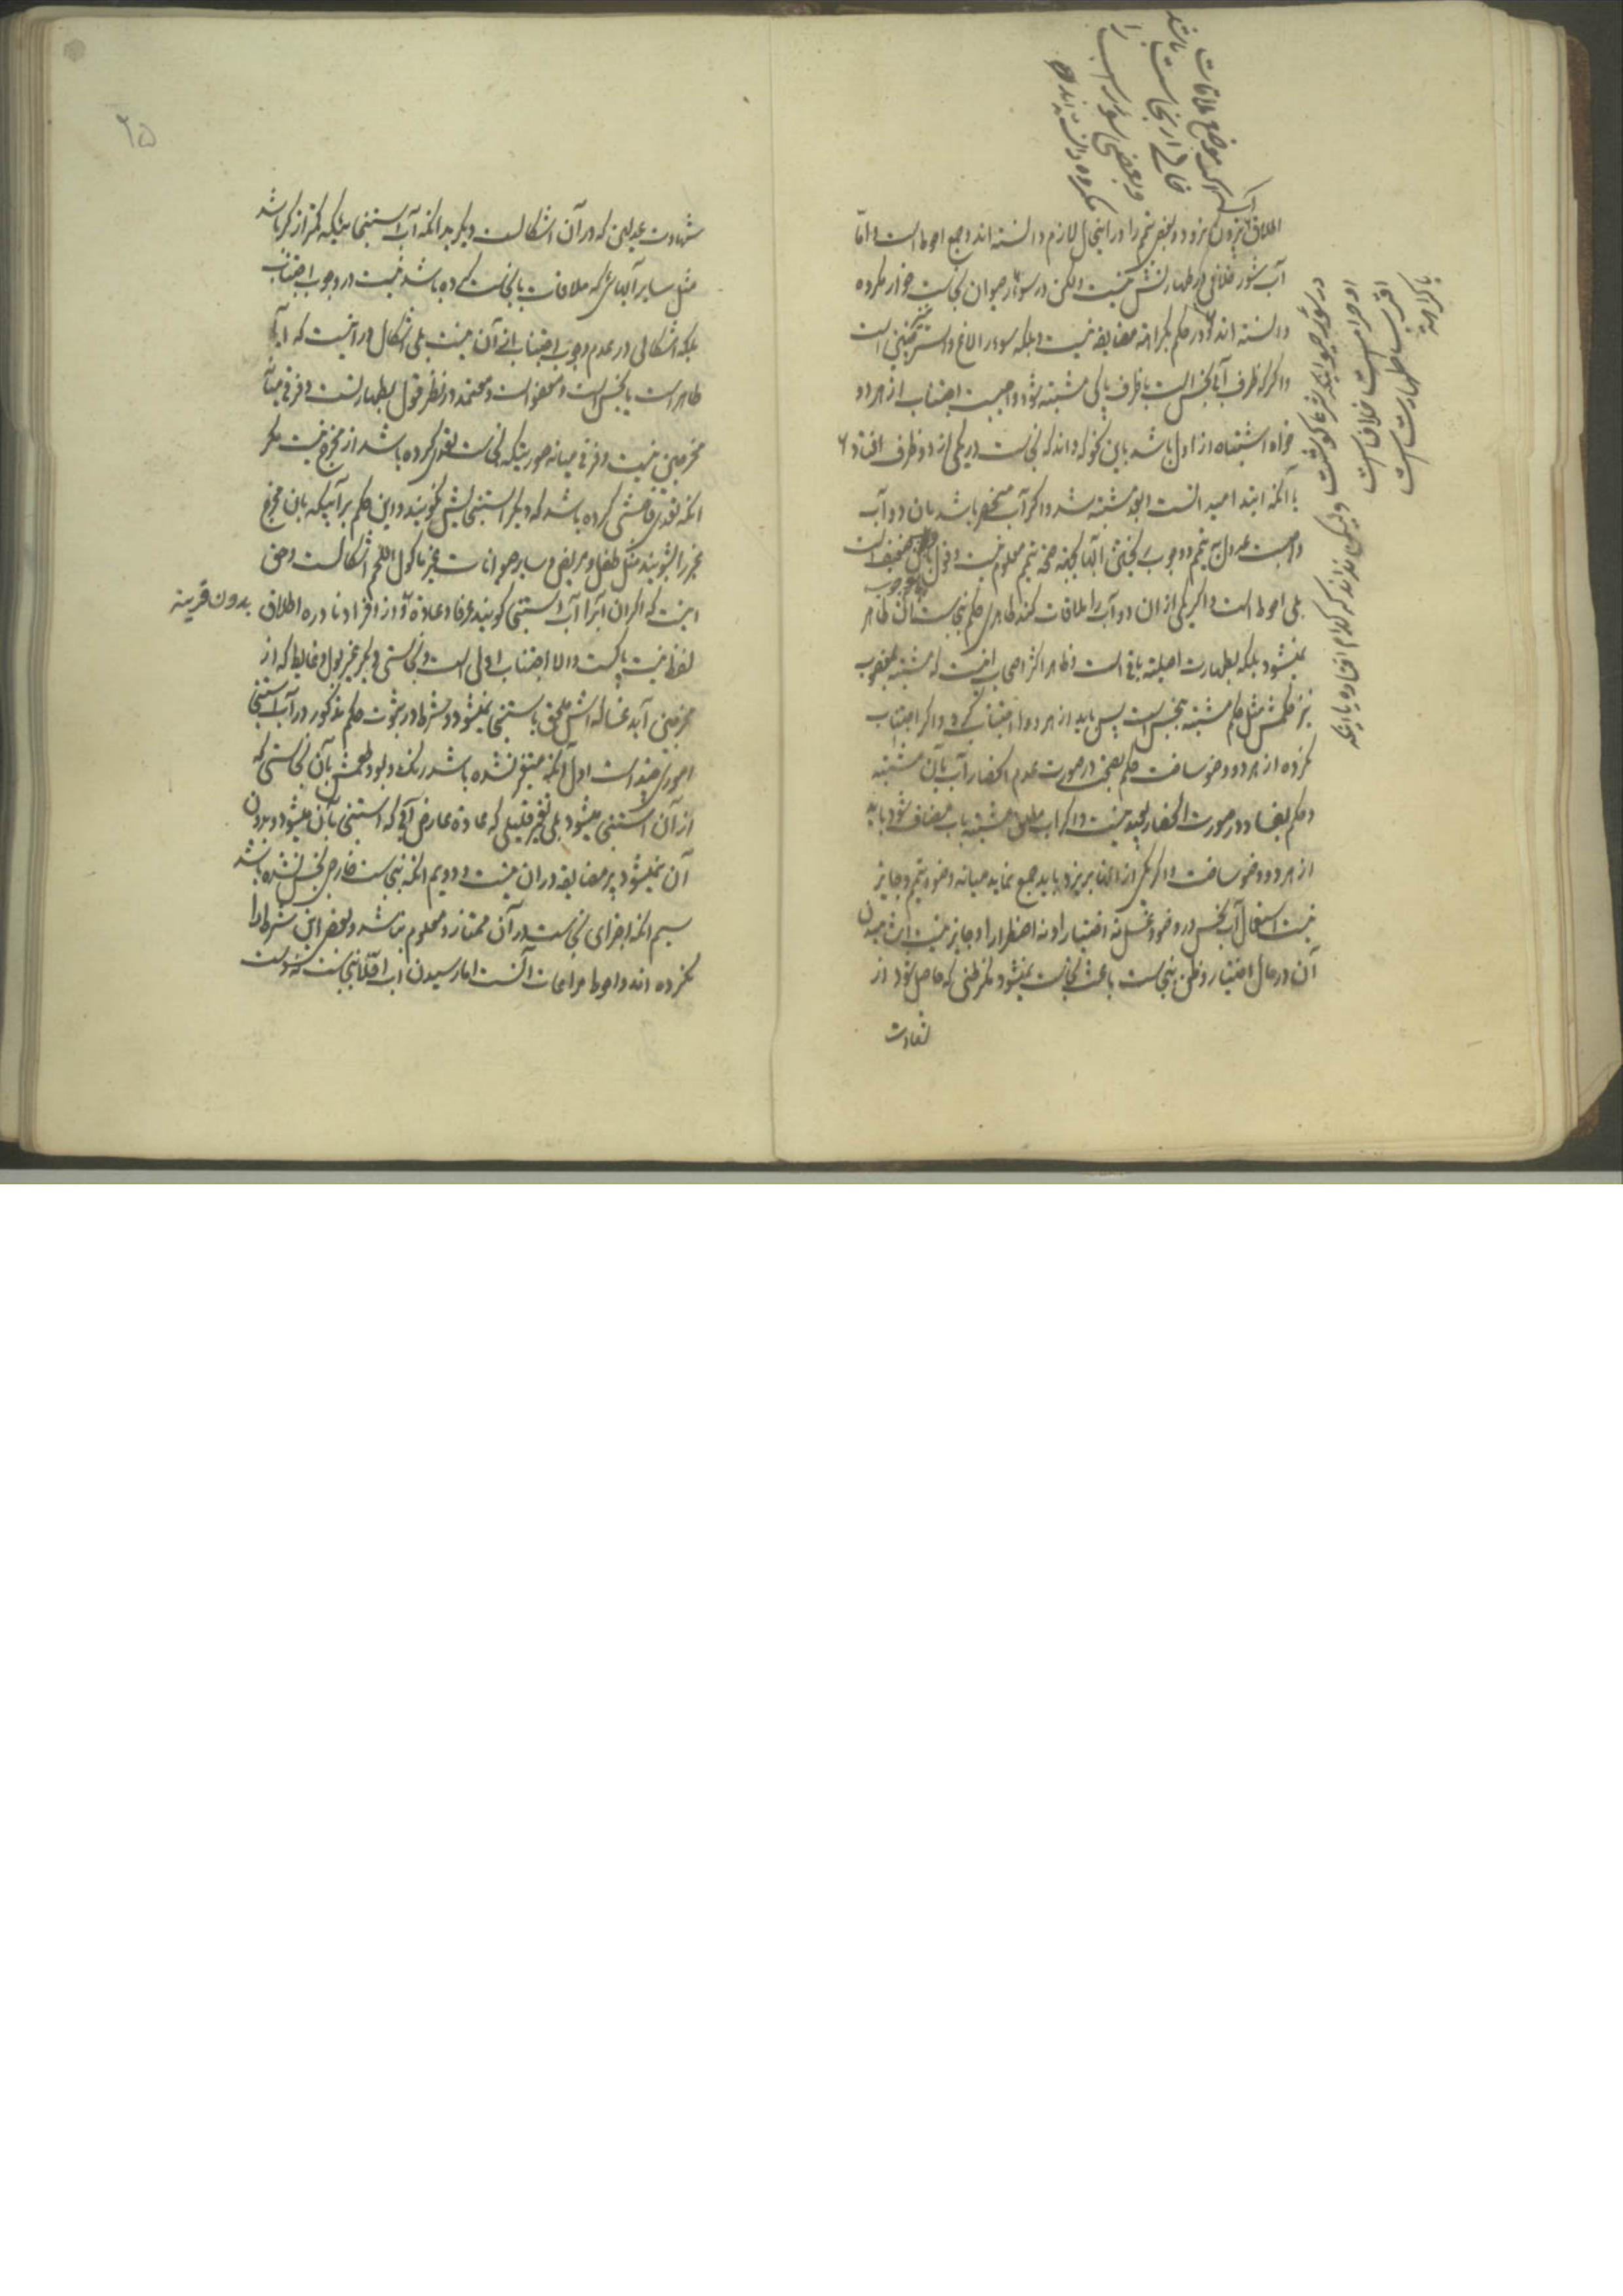 اطلاق بیرون نرود و بعضی تیمم را در اینحال لازم دانسته‌اند و جمع احوط است و امّا
آب شور خلافی در طهارتش نیست ولکن در سؤر حیوان نجاست خوار مکروه
دانسته‌اند و در حکم بکراهة مضایقه نیست و بلکه سؤر الاغ و استر نیز چنین است
و اگر که ظرف آبی نجس است با ظرف پاکی مشتبه شود واجبست اجتناب از هر دو
خواه اشتباه از اول باشد باین نحو که داند که نجاست در یکی از دو ظرف افتاد
یا آنکه ابتدا میدانست و بعد مشتبه شد و اگر آب منحصر باشد بان دو آب
واجبست عدول به تیمم و وجوب ریختن آبها بجهة صحة تیمم معلوم نیست و قول ضعیف است
بلی احوط است و اگر یکی از ان دو آب را ملاقات کند طاهری حکم بنجاست آن طاهر
نمیشود بلکه بطهارت اصلیة باقی است و ظاهر اکثر اصحاب اینست که مشتبه بغصوب
نیز حکمش مثل حکم مشتبه بنجس است پس باید از هر دو اجتناب کرد و اگر اجتناب
نکرده از هر دو وضو ساخت حکم بصحت در صورت عدم انحصار آب بآن مشتبه
و حکم بفساد در صورت انحصار بعید نیست و اگر آب مطلق مشتبه باب مضاف شود باید
از هر دو وضو ساخت و اگر یکی از آنها بریزد باید جمع نماید میانه وضو و تیمم و جایز
نیست استعمال آب نجس در وضو و غسل نه اختیارا و نه اضطرارا و جایز نیست اشامیدن
آن در حال اختیار و ظن بنجاست باعث نجاست نمیشود مگر ظنی که حاصل شود از
شهادت
اگر موضع ملاقات
خالی از نجاست باشد
و بعضی سؤر اسب را
مکروه دانسته‌اند
در سؤر حیوانیکه شرعا گوشت
او حرامست خلاف است
اقرب طهارت است
با کراهة
ولیکن نداند که کدام افتاده یا اینکه
۲۵
شهادت عدلین که در آن اشکالست و دیگر بدانکه آب استنجا بیکه کمتر از کر باشد
مثل سایر آبهای که ملاقات با نجاست کرده باشد نیست در وجوب اجتناب
بلکه اشکالی در عدم وجوب اجتناب از آن نیست بلی اشکال در اینست که آیا
طاهر است یا نجس است و معفو است و معتمد در نظر قول بطهارتست و فرقی میانه
مخرجین نیست و فرقی میانه صورتیکه نجاست تعدی کرده باشد از مخرج نیست مگر
انکه تعدی فاحشی کرده باشد که دیگر استنجایش نگویند و این حکم بر آبیکه بان مخرج
غیر را بشویند مثل طفل و مریض و سایر حیوانات غیر ماکول اللحم اشکالست و حق
اینست که اگر ان آبرا آب استنجا گویند عرفا و عادة و از افراد نادره اطلاق
بدون قرینه
لفظ نیست پاکست و الا اجتناب اولی است و نجاستی دیگر غیر بول و غایط که از
مخرجین آید غساله‌اش ملحق باستنجا نمیشود و شرط در ثبوت حکم مذکور در آب استنجا
امور چند است اول آنکه متغیر نشده باشد رنگ و بو و طعمش بآن نجاستی که
از آن استنجا میشود بلی تغیر قلیلی که عادة عارض آبی که استنجا بآن میشود و بدون
آن نمیشود پر مضایقه در ان نیست و دویم انکه بنجاست خارجی نجس نشده باشد
سیم انکه اجزای نجاست در آن ممتاز و معلوم نباشد و بعضی این شرط را
نکرده‌اند و احوط مراعات آنست اما رسیدن آب اقلّا بنجاست